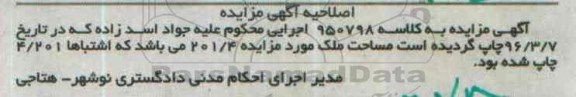 اصلاحیه آگهی مزایده
آگهی مزایده به کلاسه ۹۵۰۷۹۸ اجرایی محکوم علیه جواد اسد زاده که در تاریخ
۹۶/۳/۷ چاپ گردیده است مساحت ملک مورد مزایده ۲۰۱/۴ می باشد که اشتباها ۴/۲۰۱
چاپ شده بود.
مدیر اجرای احکام مدنی دادگستری نوشهر- هتاجی